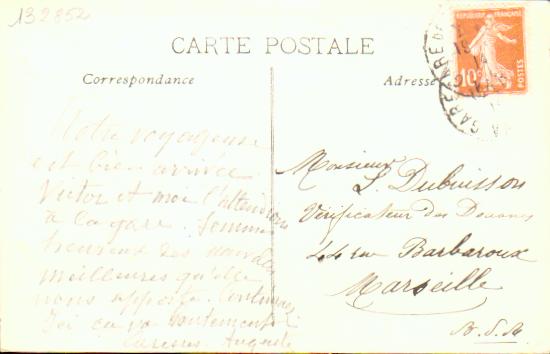 132852
CARTE POSTALE
Correspondance
Adresse
REPUBLIQUE FRANÇAISE
10c
POSTES
GARE
14
Notre voyageuse
est bien arrivée
Victor et moi l'attendions
à la gare. Sommes
heureux des nouvelles
meilleures qu'elle
nous apporte. Continuez
Ici ça va doucement
Caresses. Auguste
Monsieur
L Dubuisson
Vérificateur des Douanes
44 rue Barbaroux
Marseille
B.D.R.